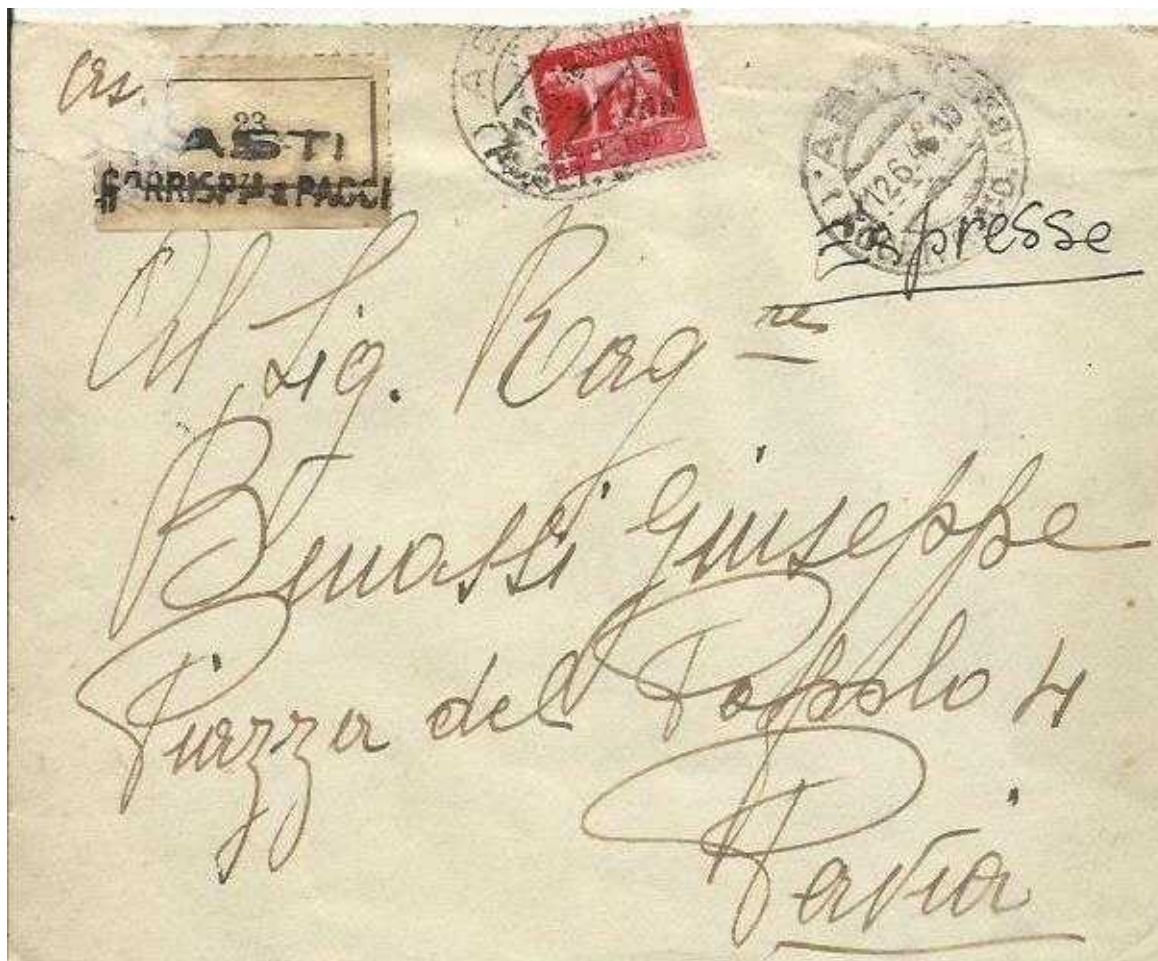 23
ASTI
CORRISPZA & PACCHI
12.6.4
Espresse
Al Sig. Rag
Giuseppe
Piazza del Popolo 4
Pavia